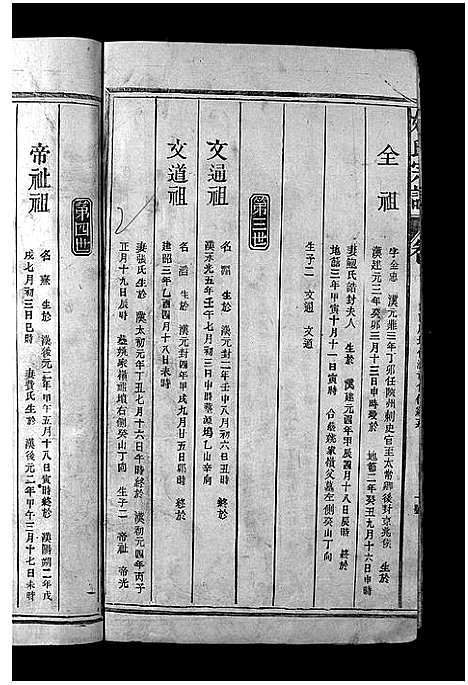 全祖
字全忠 漢元鼎三年丁卯任陝州刺史官至太常卿後対京兆侯 生於
漢建元三年癸卯三月十三日申時歿於 地節二年癸丑九月十六日申時
妻 氏誥封夫人 生於 漢建元四年甲辰四月十八日辰時 終於
地節三年甲寅十月十一日寅時 合葬姚家嶺父墓左側癸山丁向
生子二 文通 文道
第三世
文通祖
名 生於 漢元封二年壬申八月初六日丑時 終於
漢永光五年壬午七月初三日申時葬 塢乙山辛向
文道祖
名滔 生於 漢元封四年甲戌九月廿五日卯時 終於
建昭三年乙酉四月十八日未時
妻張氏生於 漢太初元年丁丑七月十六日午時終於 漢初元四年丙子
正月十九日辰時 葬姚家嶺祖墳右側癸山丁向 生子二 帝祉 帝光
第四世
帝祉祖
名熹 生於 漢後元二年甲午五月十八日寅時終於 漢陽朔二年戊
戌七月初三日巳時
妻費氏生於 漢後元二年甲午三月十七日未時